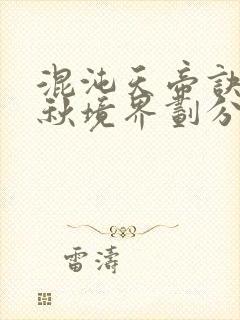 混沌天帝訣
秋境界劃分
雷濤